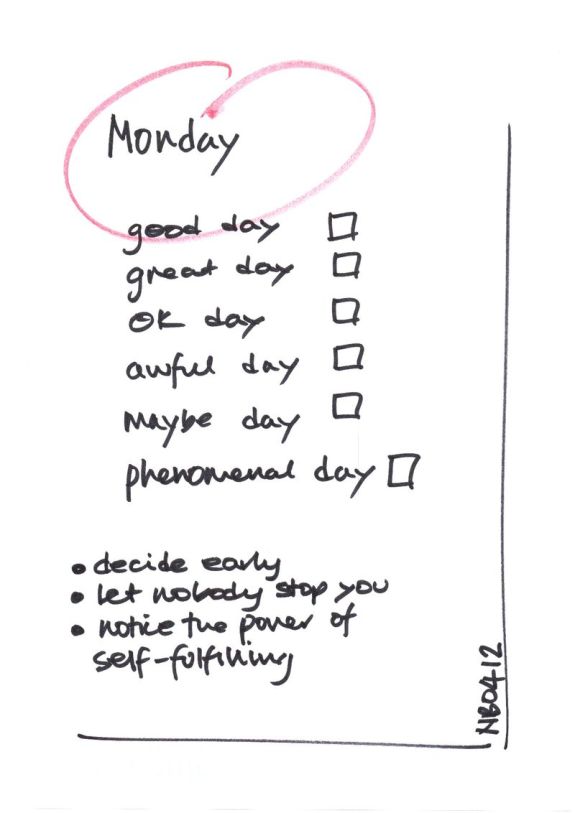 Monday
good day
great day
OK day
awful day
maybe day
phenomenal day
• decide early
• let nobody stop you
• notice the power of
self-fulfilling
NB0412